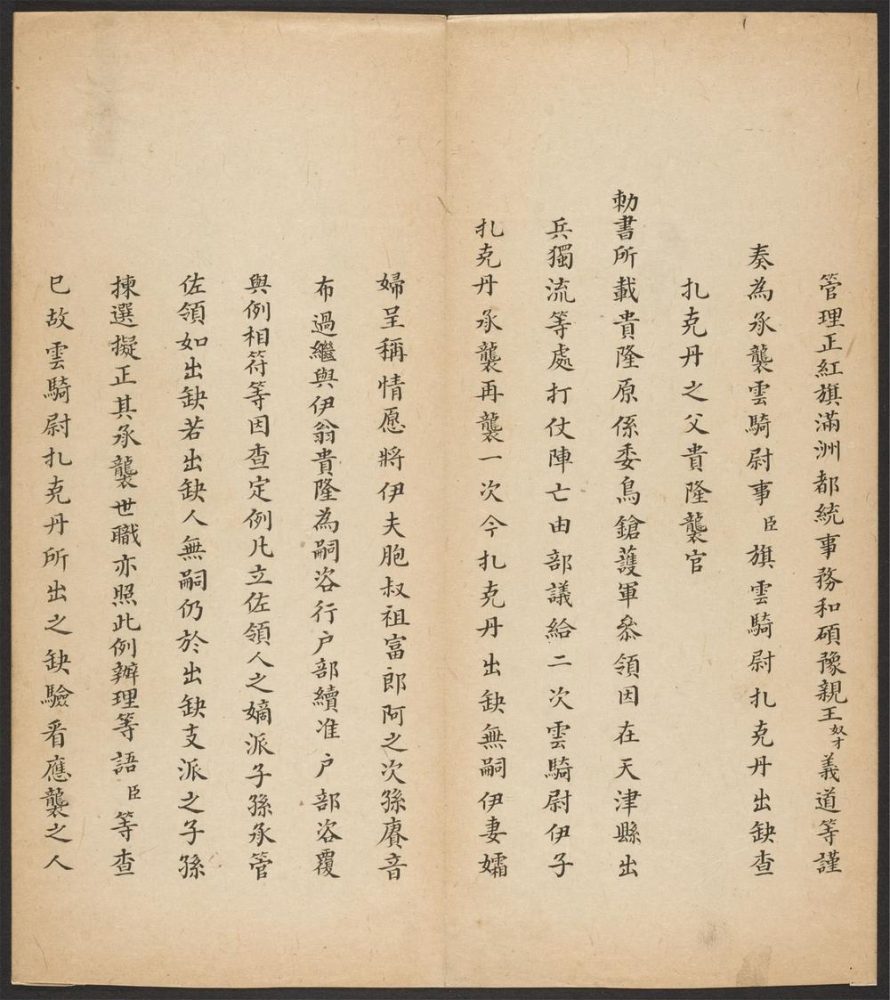 管理正紅旗滿洲都統事務和碩豫親王奴才義道等謹
奏為承襲雲騎尉事臣旗雲騎尉扎克丹出缺查
扎克丹之父貴隆襲官
勅書所載貴隆原係委鳥鎗護軍叅領因在天津縣出
兵獨流等處打仗陣亡由部議給二次雲騎尉伊子
扎克丹承襲再襲一次今扎克丹出缺無嗣伊妻孀
婦呈稱情愿將伊夫胞叔祖富郎阿之次孫賡音
布過繼與伊翁貴隆為嗣咨行户部續准户部咨覆
與例相符等因查定例凡立佐領人之嫡派子孫承管
佐領如出缺若出缺人無嗣仍於出缺支派之子孫
揀選擬正其承襲世職亦照此例辦理等語臣等查
已故雲騎尉扎克丹所出之缺驗看應襲之人